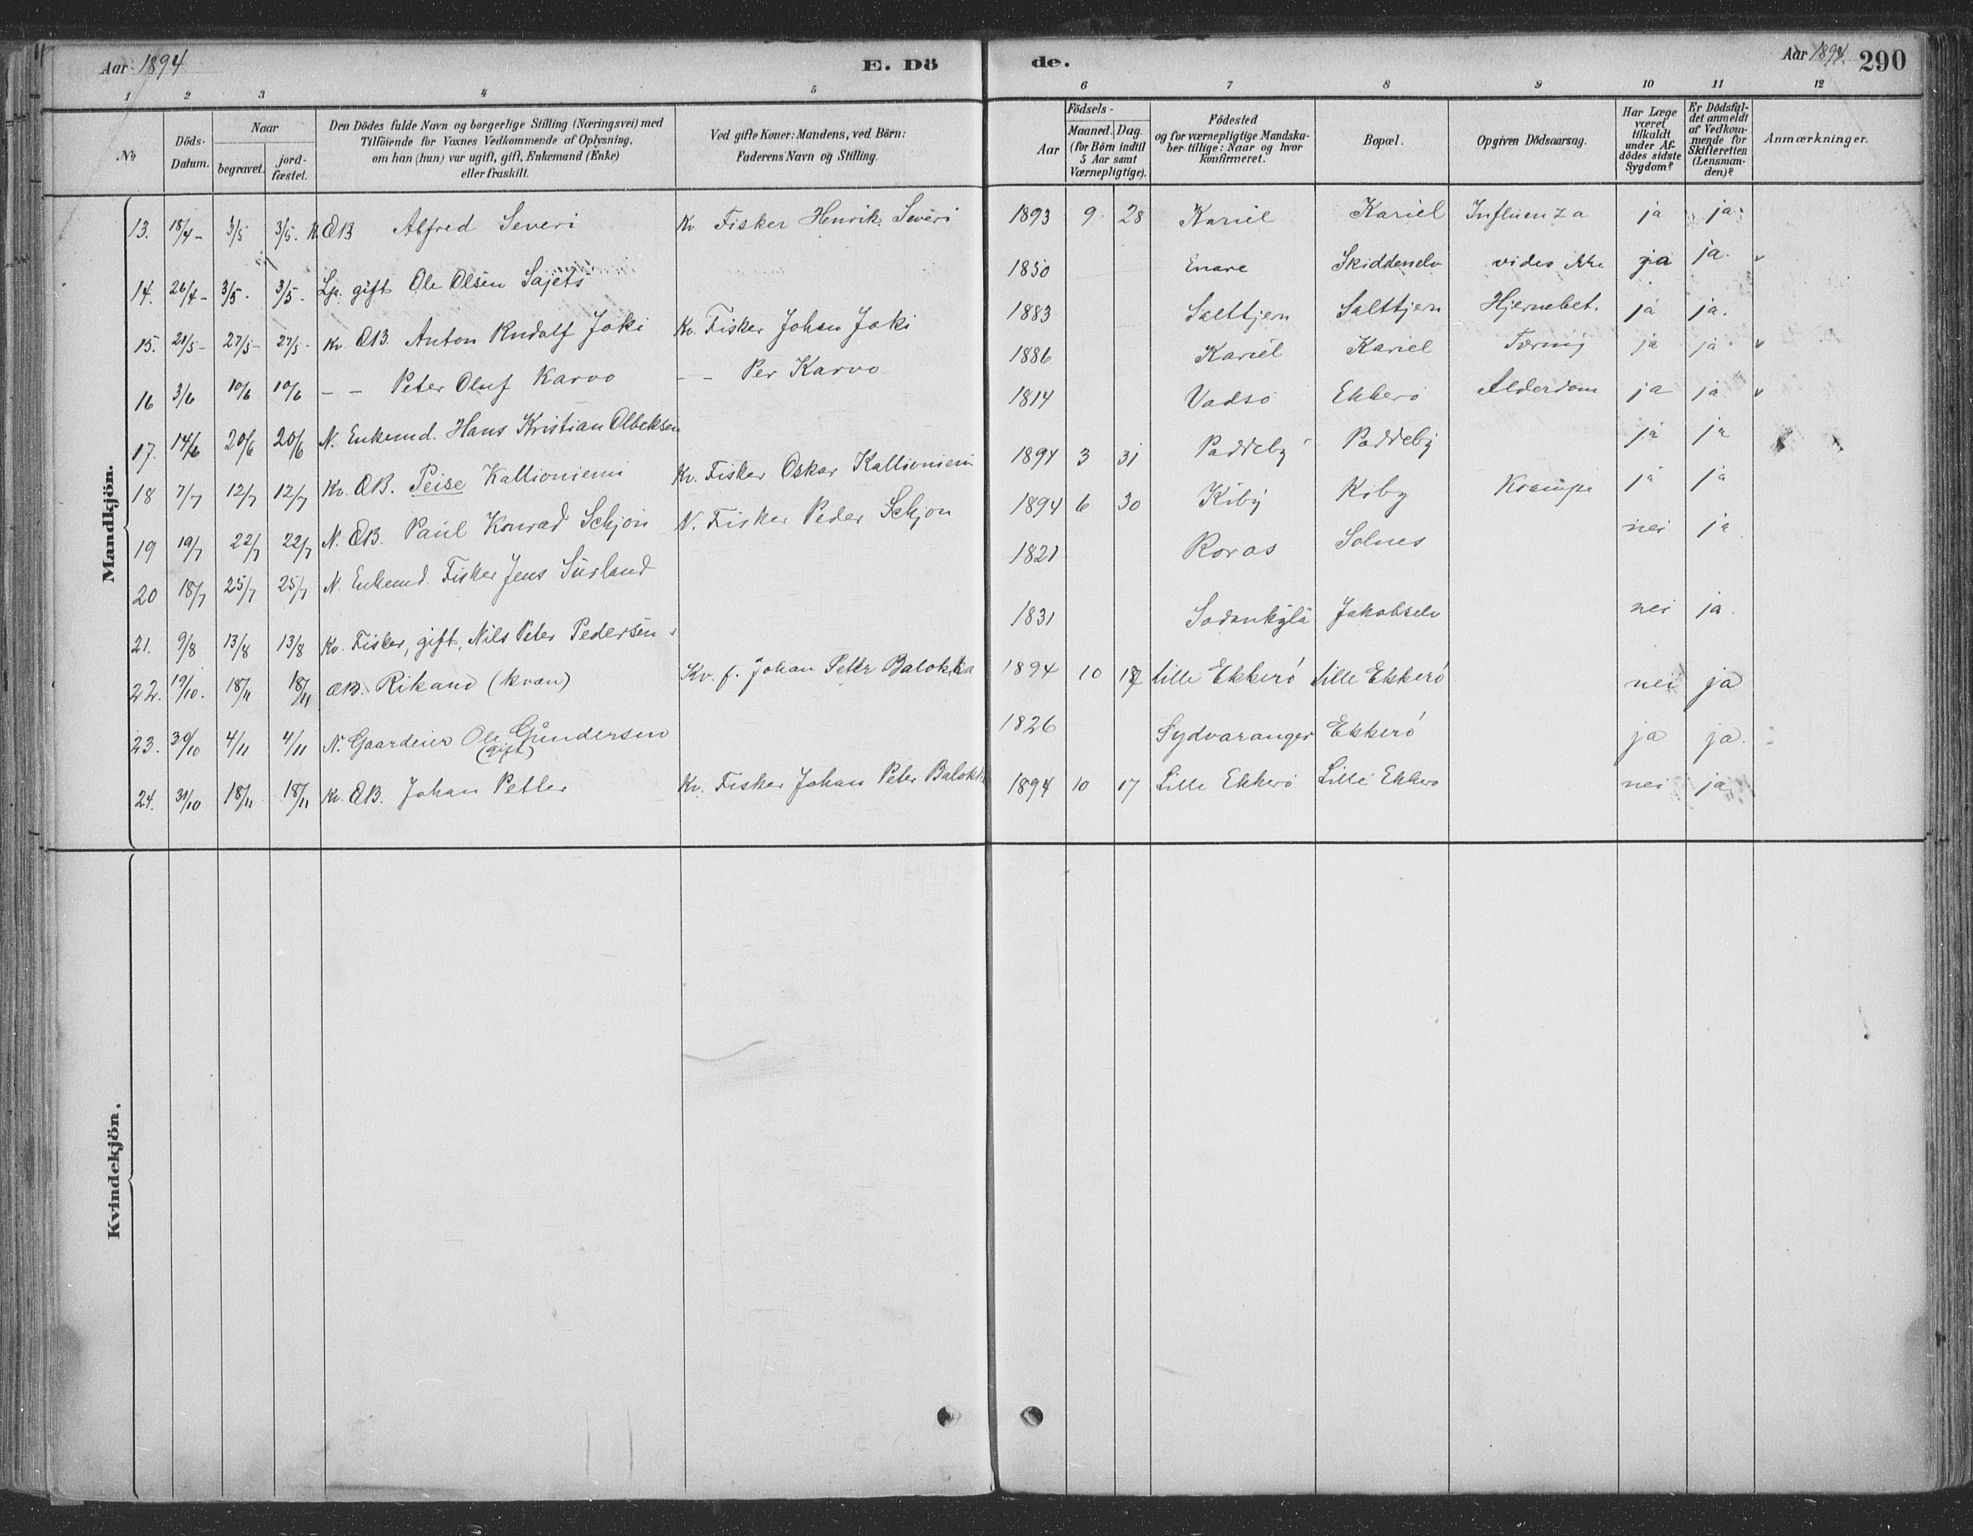 Aar 1894 E. Döde. Aar 1894. 290
1 2 3 4 5 6 7 8 9 10 11 12
No
Döds-Datum.
Naar
begravet.
jord-fæstet.
Den Dödes fulde Navn og borgerlige Stilling (Næringsvei) med
Tilföiende for Voxnes Vedkommende af Oplysning,
om han (hun) var ugift, gift, Enkemand (Enke)
eller fraskilt.
Ved gifte Koner: Mandens, ved Börn:
Faderens Navn og Stilling.
Födsels-
Aar
Maaned. Dag.
(for Börn indtil
5 Aar samt
Værnepligtige).
Födested
og for værnepligtige Mandska-
ber tillige: Naar og hvor
konfirmeret.
Bopæl.
Opgiven Dödsaarsag.
Har Læge
været
tilkaldt
under Af-
dödes sidste
Sygdom?
Er Dödsfal-
det anmeldt
af Vedkom-
mende for
Skifteretten
(Lensman-
den)?
Anmærkninger.
Mandkjön.
13. 18/4 3/5 3/5. ÆB Alfred Severi Kv. Fisker Henrik Severi 1893 9 28 Kariel Kariel Influenza ja ja
14. 26/4 3/5 3/5 Lp. gift Ole Olsen Sajets 1850 Enare Skiddenelv vides ikke ja ja.
15. 21/5 27/5 27/5 Kv. ÆB. Anton Rudolf Joki Kv. Fisker Johan Joki 1883 Salttjern Salttjern Hjernebet. ja ja.
16 3/6 10/6 10/6 – – Peter Oluf Karvo – – Per Karvo 1886 Kariel Kariel Tæring ja ja
17. 14/6 20/6 20/6 N. Enkemd. Hans Kristian Olbeksen 1814 Vadsö Ekkerö Alderdom ja ja
18 7/7 12/7 12/7 Kv. ÆB. Peise Kallioniemi Kv. Fisker Oskar Kallioniemi 1894 3 31 Paddeby Paddeby ja ja
19 19/7 22/7 22/7 N. ÆB. Paul Konrad Schjön N. Fisker Peder Schjön 1894 6 30 Kiby Kiby Krampe ja ja
20 18/7 25/7 25/7 N. Enkemd. Fisker Jens Surland 1821 Roros Solnes nei ja
21. 9/8 13/8 13/8 Kv. Fisker, gift, Nils Peter Pedersen 1831 Sodankylä Jakobselv nei ja.
22. 19/10. 18/11 18/11 ÆB. Rikand (kvæn) Kv. f. Johan Petter Balokka 1894 10 17 Lille Ekkerö Lille Ekkerö nei ja
23. 30/10 4/11 4/11 N. Gaardeier Ole Gundersen (gift) 1826 Sydvaranger Ekkerö ja ja.
24. 31/10 18/11 18/11 Kv. ÆB. Johan Petter Kv. Fisker Johan Peter Balokka 1894 10 17 Lille Ekkerö Lille Ekkerö nei ja
Kvindekjön.